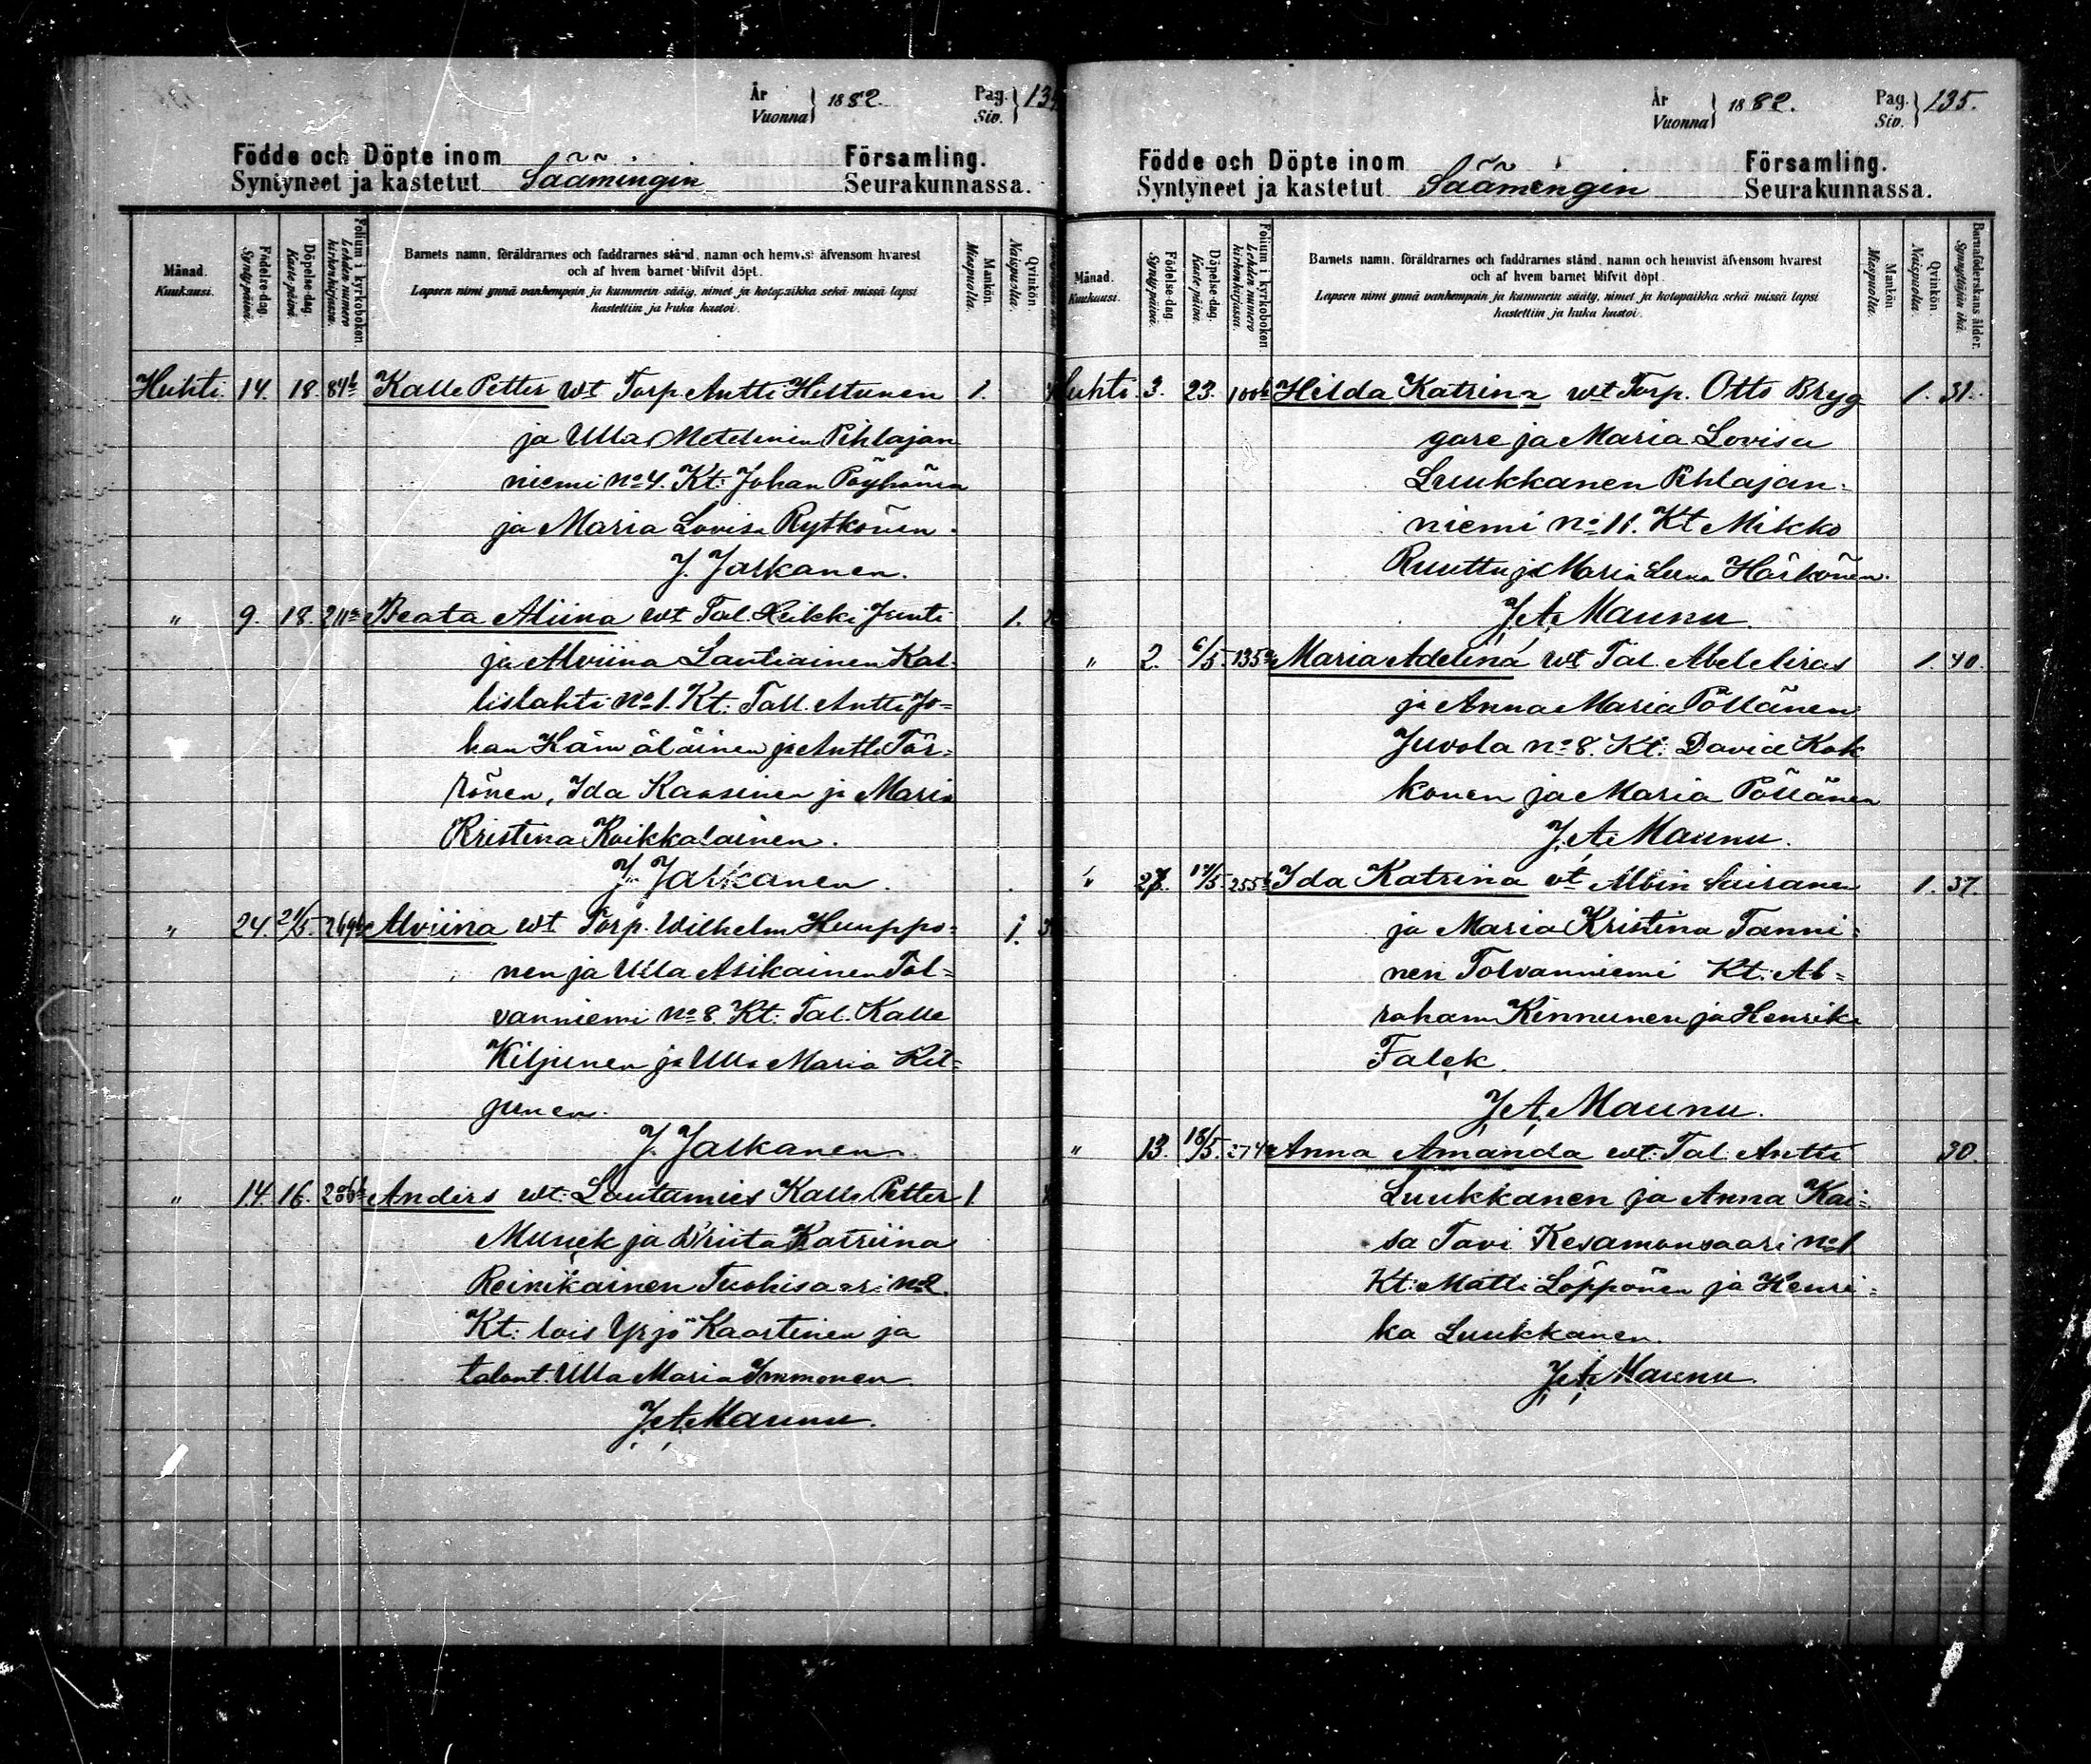 År
Vuonna } 1882. Pag.
Siv. } 134
Födde och Döpte inom Församling.
Syntyneet ja kastetut Säämingin Seurakunnassa.
Månad.
Kuukausi.
Födelse-dag.
Synty-päivä.
Döpelse-dag.
Kaste-päivä.
Folium i kyrkoboken.
Lehden numero kirkonkirjassa.
Barnets namn, föräldrarnes och faddrarnes stånd, namn och hemvist äfvensom hvarest
och af hvem barnet blifvit döpt.
Lapsen nimi ynnä vanhempain ja kummein sääty, nimet ja kotopaikka sekä missä lapsi
kastettiin ja kuka kastoi.
Mankön.
Miespuolia.
Qvinkön.
Naispuolia.
Huhti. 14. 18. 84b Kalle Petter wt Torp. Antti Hiltunen 1.
ja Ulla Metelinen Pihlajan
niemi No 4. Kt: Johan Pöyhönen
ja Maria Lovisa Rytkönen.
J. Jalkanen.
" 9. 18. 211a Beata Aliina wt Tal. Heikki Junti 1.
ja Alviina Lautiainen Kal-
lislahti No 1. Kt: Tall. Antti Jo=
han Hämäläinen ja Antti Tör=
rönen, Ida Kaasinen ja Maria
Kristina Koikkalainen.
J. Jalkanen.
" 24. 21/5. 269b Alviina wt Torp. Wilhelm Humppo= 1.
nen ja Ulla Asikainen Tol=
vanniemi No 8. Kt: Tal. Kalle
Kiljunen ja Ulla Maria Kil=
junen.
J. Jalkanen
" 14. 16. 206b Anders wt: Lautamies Kalle Petter 1.
Munck ja Kriita Katriina
Reinikainen Tuohisaari No 2.
Kt: lois Yrjö Kaartinen ja
talont. Ulla Maria Immonen
J. A. Maunu.
År
Vuonna } 1882. Pag.
Siv. } 135.
Födde och Döpte inom Församling.
Syntyneet ja kastetut Säämingin Seurakunnassa.
Månad.
Kuukausi.
Födelse-dag.
Synty-päivä.
Döpelse-dag.
Kaste-päivä.
Folium i kyrkoboken.
Lehden numero kirkonkirjassa.
Barnets namn, föräldrarnes och faddrarnes stånd, namn och hemvist äfvensom hvarest
och af hvem barnet blifvit döpt.
Lapsen nimi ynnä vanhempain ja kummein sääty, nimet ja kotopaikka sekä missä lapsi
kastettiin ja kuka kastoi.
Mankön.
Miespuolia.
Qvinkön.
Naispuolia.
Barnaföderskans ålder.
Synnyttäjän ikä.
Huhti. 3. 23. 100b Hilda Katrina wt Torp. Otto Bryg 1. 31.
gare ja Maria Lovisa
Luukkanen Pihlajan=
niemi No 11. Kt Mikko
Ruuttu ja Maria Leena Härkönen.
J. A. Maunu.
" 2. 6/5. 135 Maria Adelina wt Tal. Abel Airas 1. 40.
ja Anna Maria Pöllänen
Juvola No 8. Kt: David Kok
konen ja Maria Pöllänen
J. A. Maunu.
" 27. 255b Ida Katrina vt Albin Sairanen 1. 37.
ja Maria Kristina Tanni=
nen Tolvanniemi Kt: Ab=
raham Kinnunen ja Henrika
Falck.
J. A. Maunu.
" 13. 18/5. 274 Anna Amanda wt: Tal. Antti 30.
Luukkanen ja Anna Kai=
sa Tavi Kesamonsaari No 1
Kt: Matti Löppönen ja Henri=
ka Luukkanen.
J. A. Maunu.